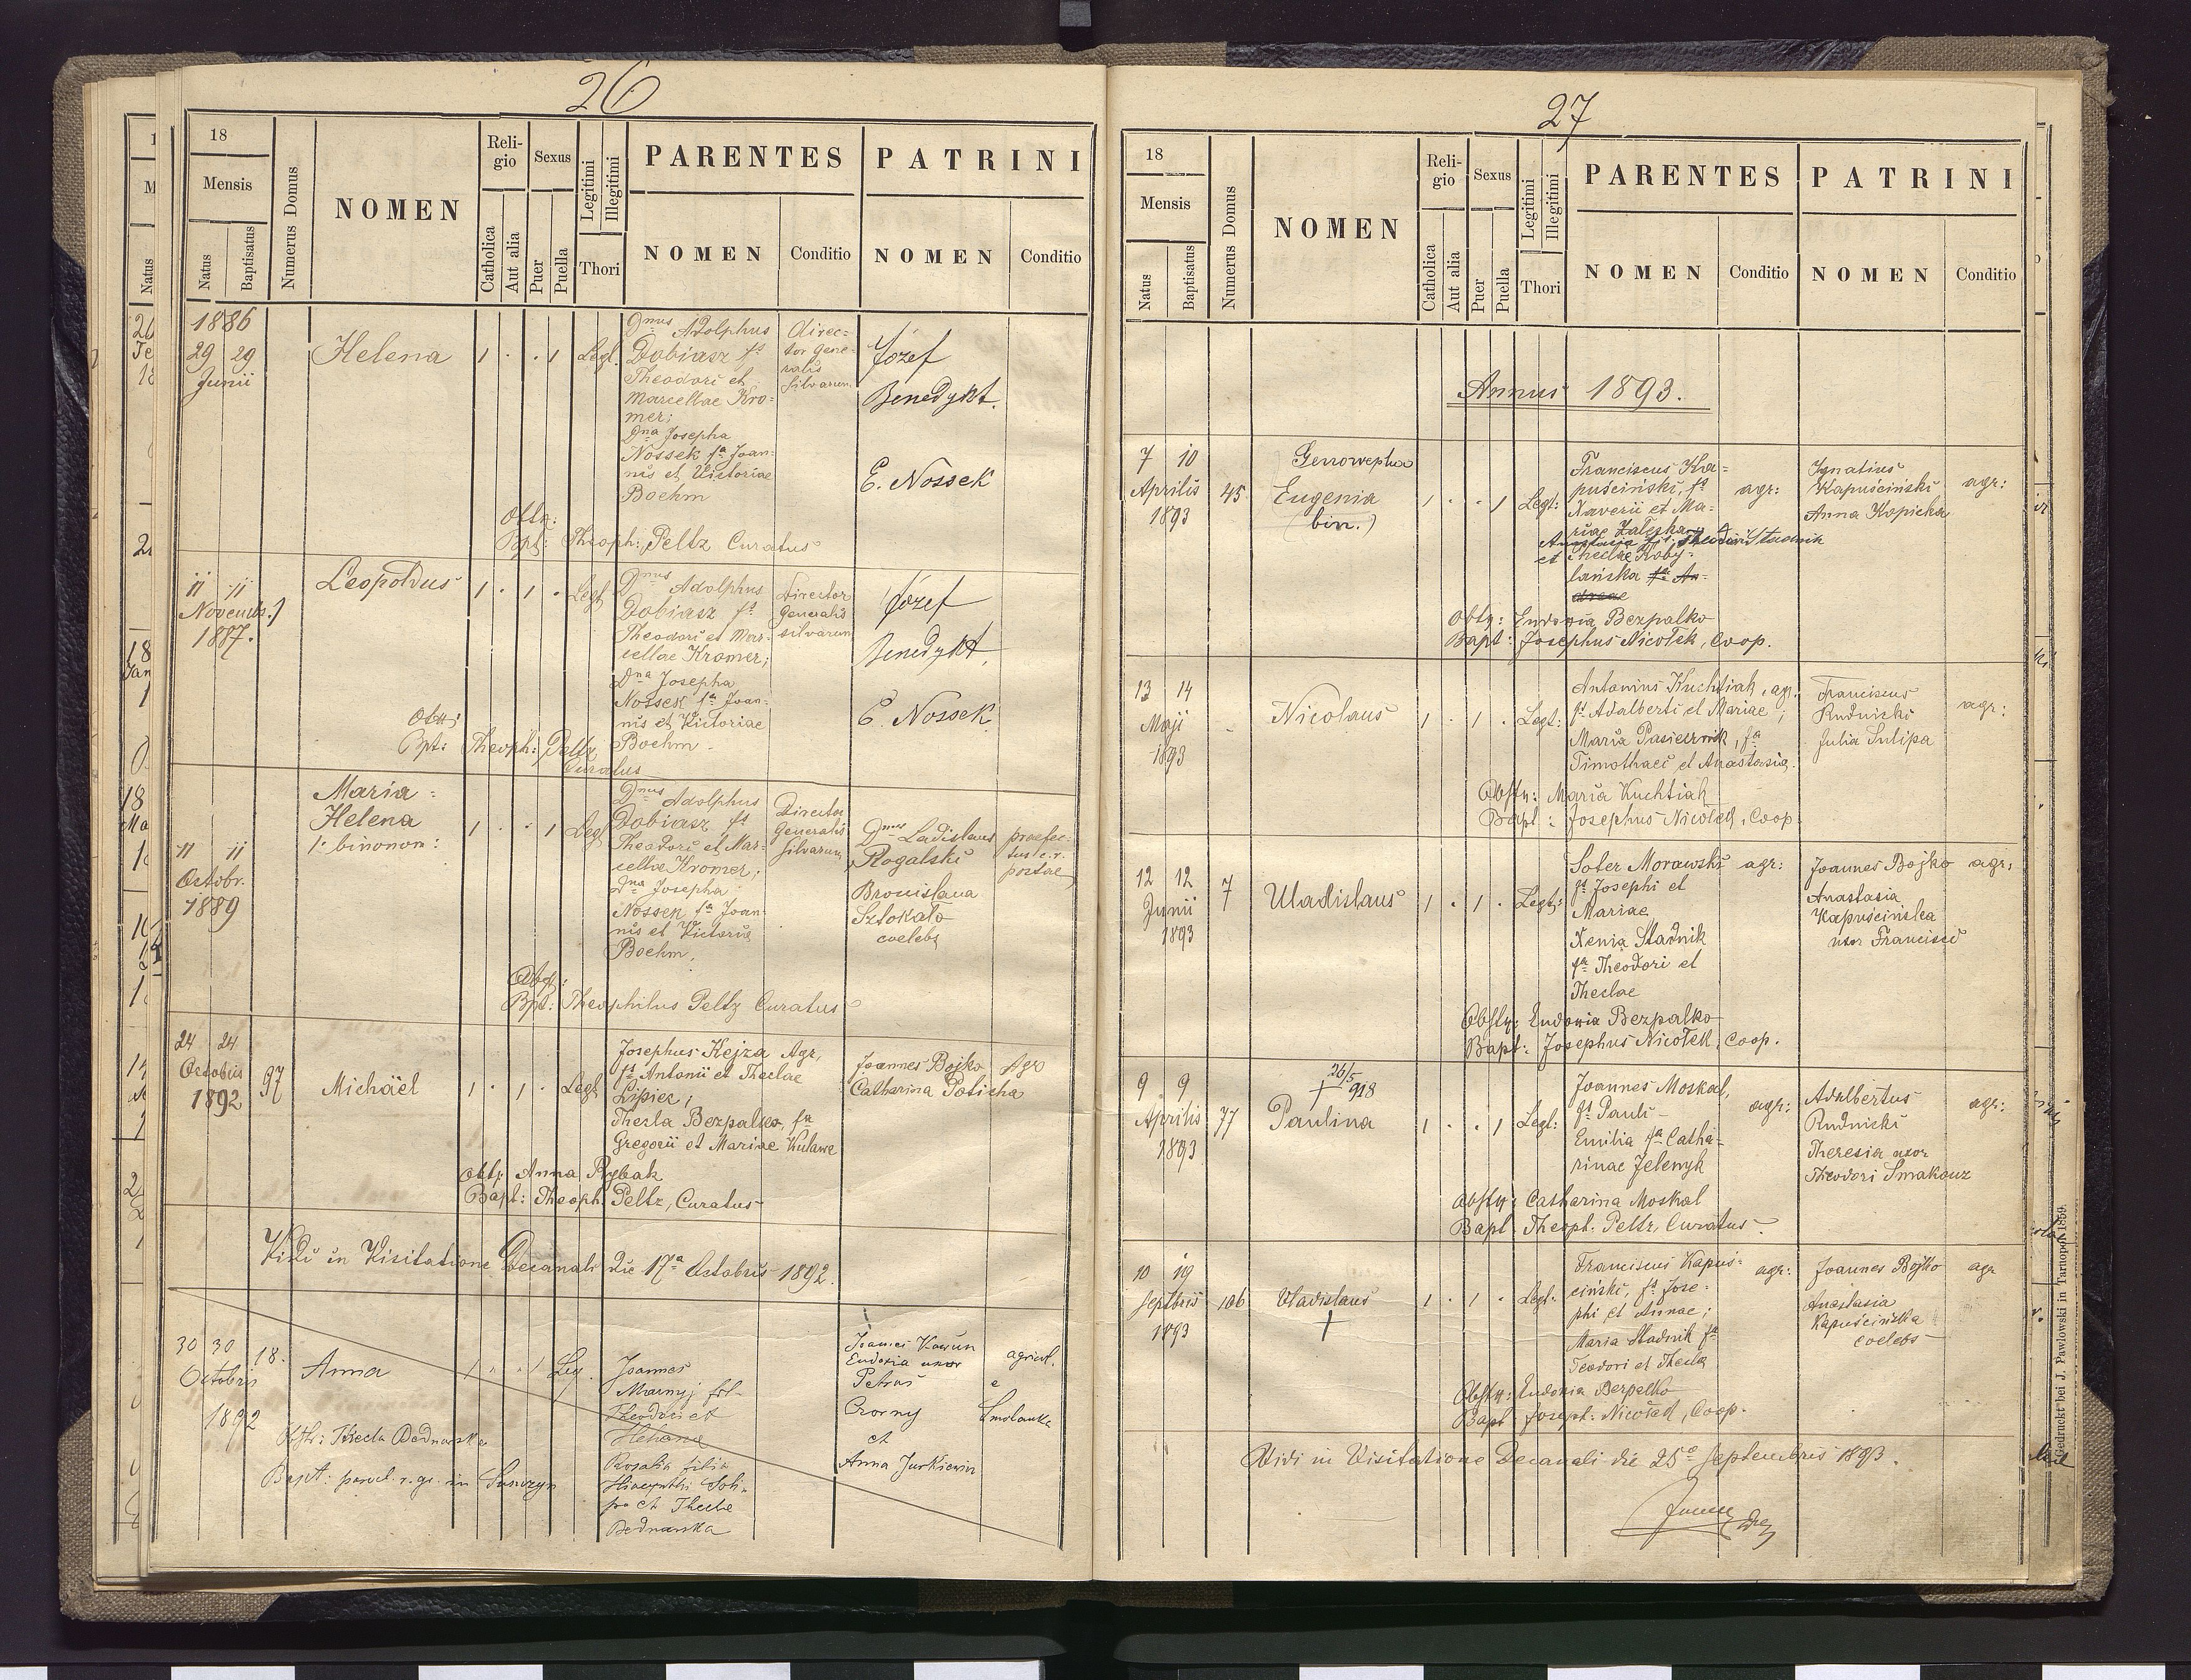 26
18
Mensis
Natus
Baptisatus
Numerus Domus
NOMEN
Reli-
gio
Catholica
Aut alia
Sexus
Puer
Puella
Legitimi
Illegitimi
Thori
PARENTES
NOMEN
Conditio
PATRINI
NOMEN
Conditio
1886
29 29
Junii
Helena
1 . . 1 Legt.
Dnus Adolphus
Dobiasz fs
Theodori et
Marcellae Kro=
mer;
Dna Josepha
Nossek fa Joan-
nis et Victoriae
Boehm
direc=
tor gene-
ralis
silvarum
Józef
Benedykt.
E. Nossek
Obstr:
Bpt: Theoph: Peltz Curatus
11 11
Novemb.
1887.
Leopoldus
1 . 1 . Legt
Dnus Adolphus
Dobiasz fs
Theodori et Mar-
cellae Kromer;
Dna Josepha
Nossek fa Joan-
nis et Victoriae
Boehm
Director
Generalis
silvarum
Józef
Benedykt.
E. Nossek
Obst:
Bpt: Theoph: Peltz
Curatus
11 11
Octobr.
1889
Maria=
Helena
binonom:
1 . . 1 Legt
Dnus Adolphus
Dobiasz fs
Theodori et Mar-
cellae Kromer;
Dna Josepha
Nossek fa Joan-
nis et Victoriae
Boehm.
Director
Generalis
silvarum
Dnus Ladislaus
Rogalski
Bronislaua
Sztokało
coelebs
praefec-
tus c.r.
postae
Obst:
Bpt: Theophilus Peltz Curatus
24 24
Octobris
1892
97
Michäel
1 . 1 . Legt
Josephus Kejza Agr,
fs Antonii et Theclae
Lipiec;
Thecla Bezpalko, fa
Gregorii et Mariae Kulawe
Joannes Bojko Agr
Catharina Poticha
Obst: Anna Rybak
Bapt: Theoph. Peltz, Curatus
Vidi in Visitatione Decanali die 17a Octobris 1892.
30 30
Octobris
1892
18.
Anna
1 . . 1 Leg.
Joannes
fil.
Theodori et
Helena
Rosalia filia
Hiacynthi
et Thecle
Bednarska
Eudoxia uxor
Petrus
Czorny
et
Anna Jurkiewin
agricol.
e
Smolanka
Obstr: Thecla Bednarska
Bapt: r. gr. in
27
18
Mensis
Natus
Baptisatus
Numerus Domus
NOMEN
Reli-
gio
Catholica
Aut alia
Sexus
Puer
Puella
Legitimi
Illegitimi
Thori
PARENTES
NOMEN
Conditio
PATRINI
NOMEN
Conditio
Annus 1893.
7 10
Aprilis
1893
45
Genowepha
Eugenia
(bin.)
1 . . 1 Legt:
Franciscus Ka=
puściński, fs
Xaverii et Ma-
riae Zaleska
Anastasia fa Theodori Stadnik
et Theclae Koby-
lańska fa An-
dreae
agr:
Ignatius
Kapuściński
Anna Kopicka
agr:
Obstz: Eudoxia Bezpalko
Bapt: Josephus Nicołek, Coop.
13 14
Maji
1893
-
Nicolaus
1 . 1 . Legt:
Antonius Kuchtiak, agr.
fs Adalberti et Mariae;
Maria Pasiecznik, fa
Timothaei et Anastasia.
Franciscus
Rudnicki
Julia Sulipa
agr:
Obstz: Maria Kuchtiak
Bapt: Josephus Nicołek, Coop.
12 12
Junii
1893
7
Wladislaus
1 . 1 . Legt:
Soter Morawski agr:
fs Josephi et
Mariae
Xenia Stadnik
fa Theodori et
Theclae
Joannes Bojko agr:
Anastasia
Kapuścińska
uxor Francisci
Obstz: Eudoxia Bezpalko
Bapt: Josephus Nicołek, Coop.
9 9
Aprilis
1893
77
+ 26/5 918
Paulina
1 . . 1 Legt:
Joannes Moskal,
fs Pauli -
Emilia fa Catha-
rinae Jelenyk
agr:
Adalbertus
Rudnicki
Theresia uxor
Theodori Smakouz
agr:
Obstz: Catharina Moskal
Bapt Theoph. Peltz, Curatus
10 19
Septbris
1893
106
Vladislaus
+
1 . 1 . Legt:
Franciscus Kapuś-
ciński, fs Jose-
phi et Annae;
Maria Stadnik fa
Teodori et Thecla
agr:
Joannes Bojko
Anastasia
Kapuścińska
coelebs
agr
Obstz: Eudoxia Bezpalko
Bapt Joseph: Nicołek, Coop.
Vidi in Visitatione Decanali die 25a Septembris 1893.
Gedruckt bei J. Pawłowski in Tarnopol 1859.